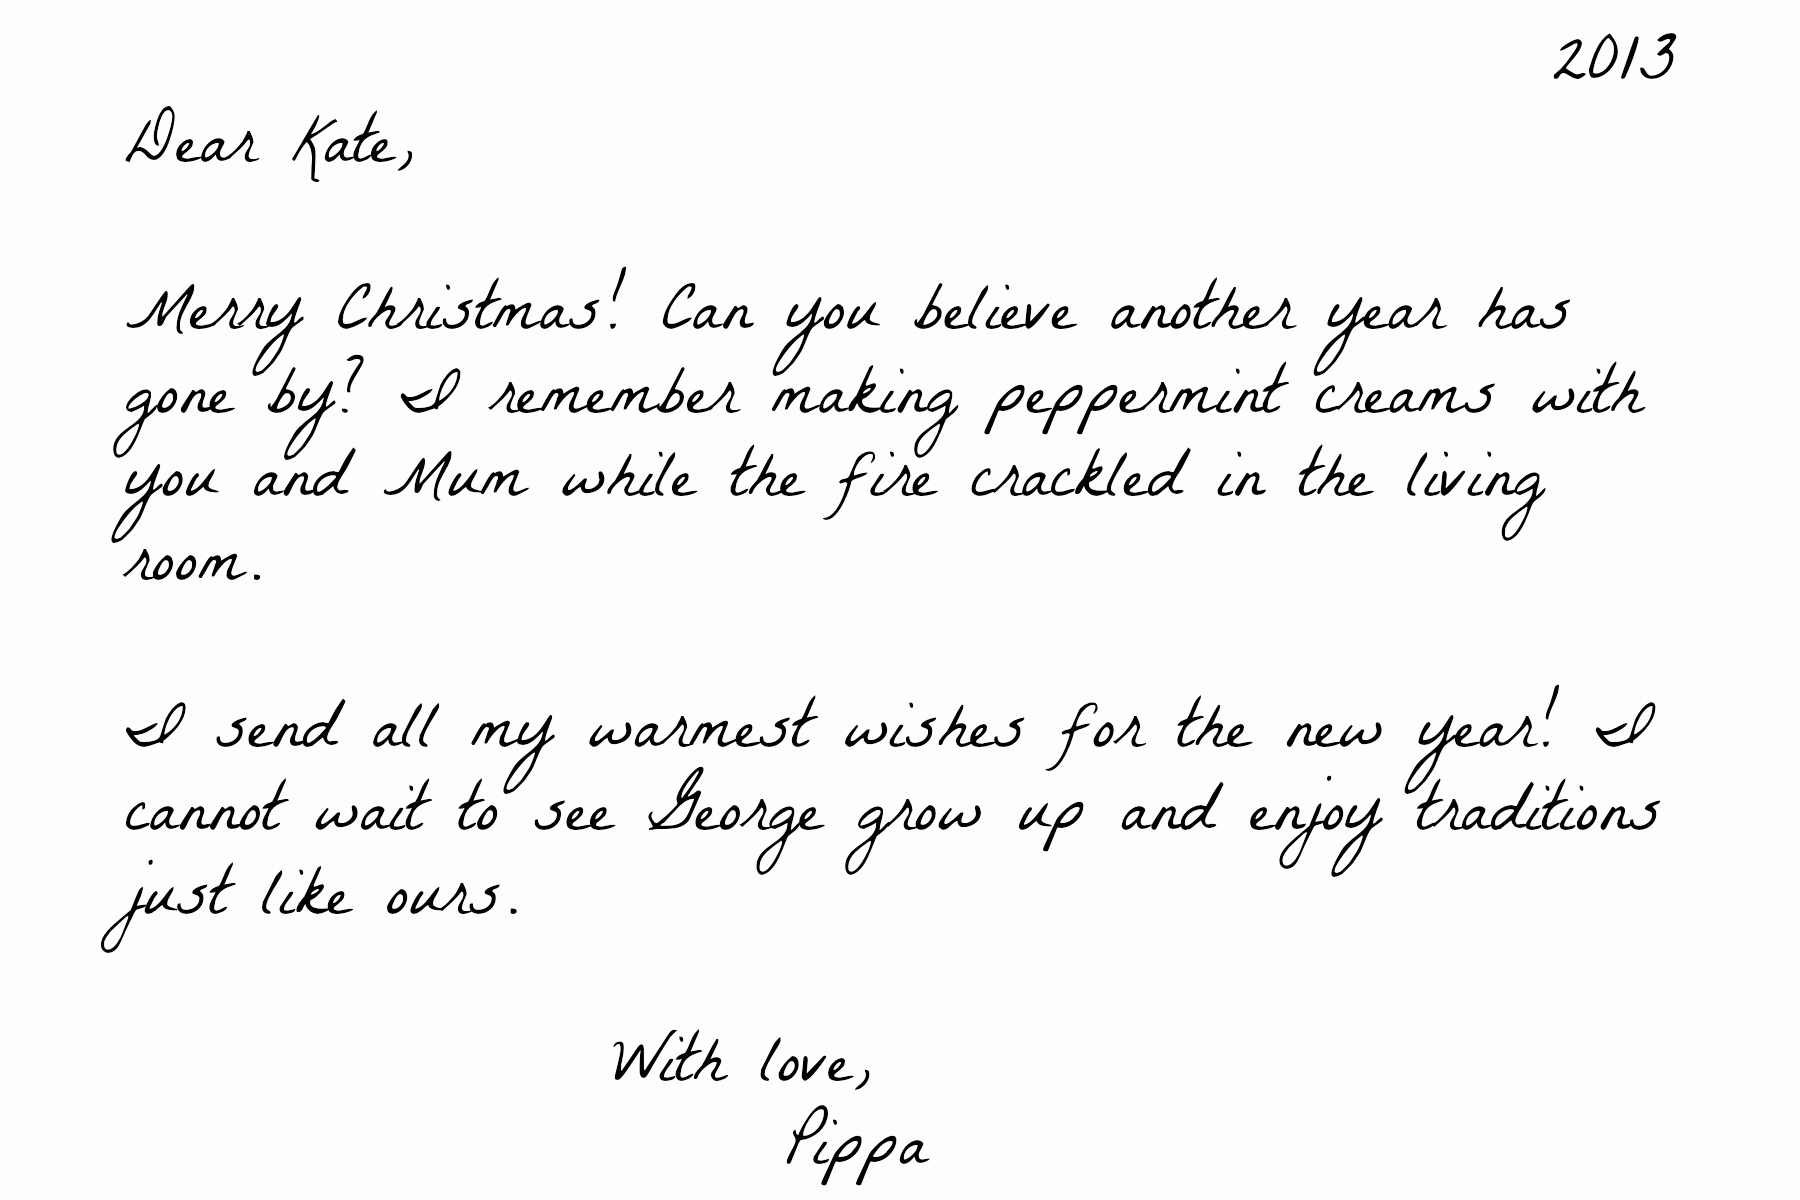 2013
Dear Kate,
Merry Christmas! Can you believe another year has
gone by? I remember making peppermint creams with
you and Mum while the fire crackled in the living
room.
I send all my warmest wishes for the new year! I
cannot wait to see George grow up and enjoy traditions
just like ours.
With love,
Pippa